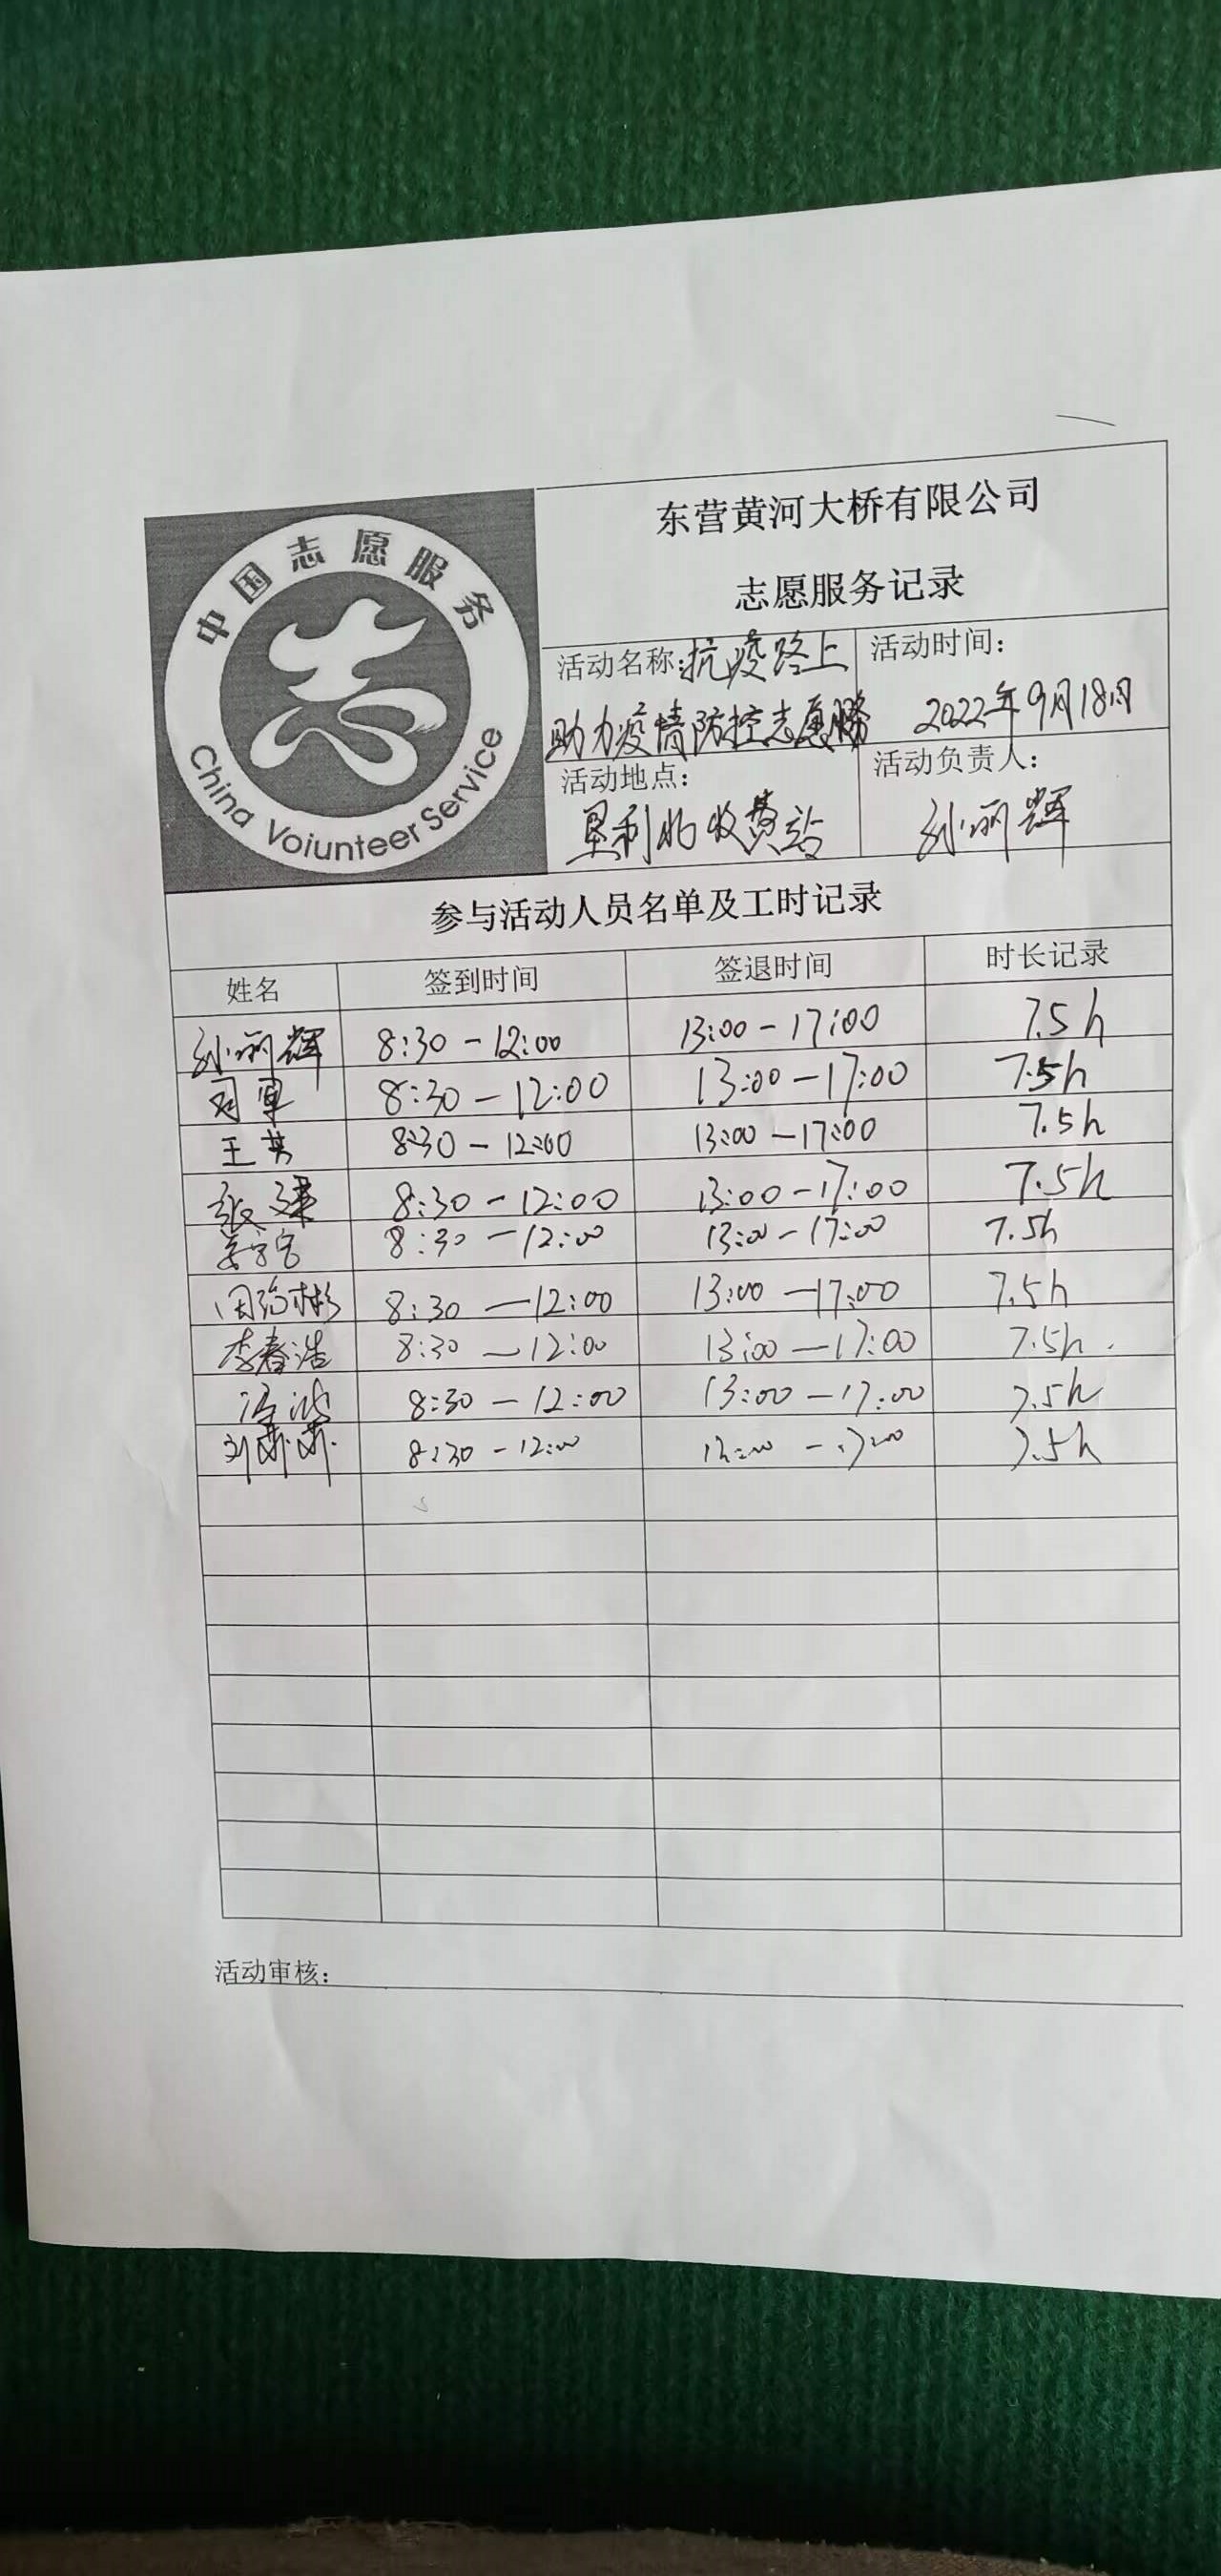 中国志愿服务
China Voiunteer Service
东营黄河大桥有限公司
志愿服务记录
活动名称:抗疫路上
助力疫情防控志愿服务
活动时间:
2022年9月18日
活动地点:
垦利北收费站
活动负责人:
孙丽辉
参与活动人员名单及工时记录
姓名 签到时间 签退时间 时长记录
孙丽辉 8:30-12:00 13:00-17:00 7.5h
8:30-12:00 13:00-17:00 7.5h
王英 8:30-12:00 13:00-17:00 7.5h
张 8:30-12:00 13:00-17:00 7.5h
8:30-12:00 13:00-17:00 7.5h
8:30-12:00 13:00-17:00 7.5h
李春浩 8:30-12:00 13:00-17:00 7.5h.
8:30-12:00 13:00-17:00 7.5h
8:30-12:00 7.5h
活动审核: